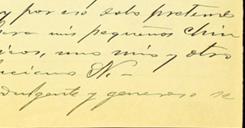 y por eso esto pretende
para mis pequeños chin
nos, uno mío y otro
luciano N.—
indulgente y generoso se